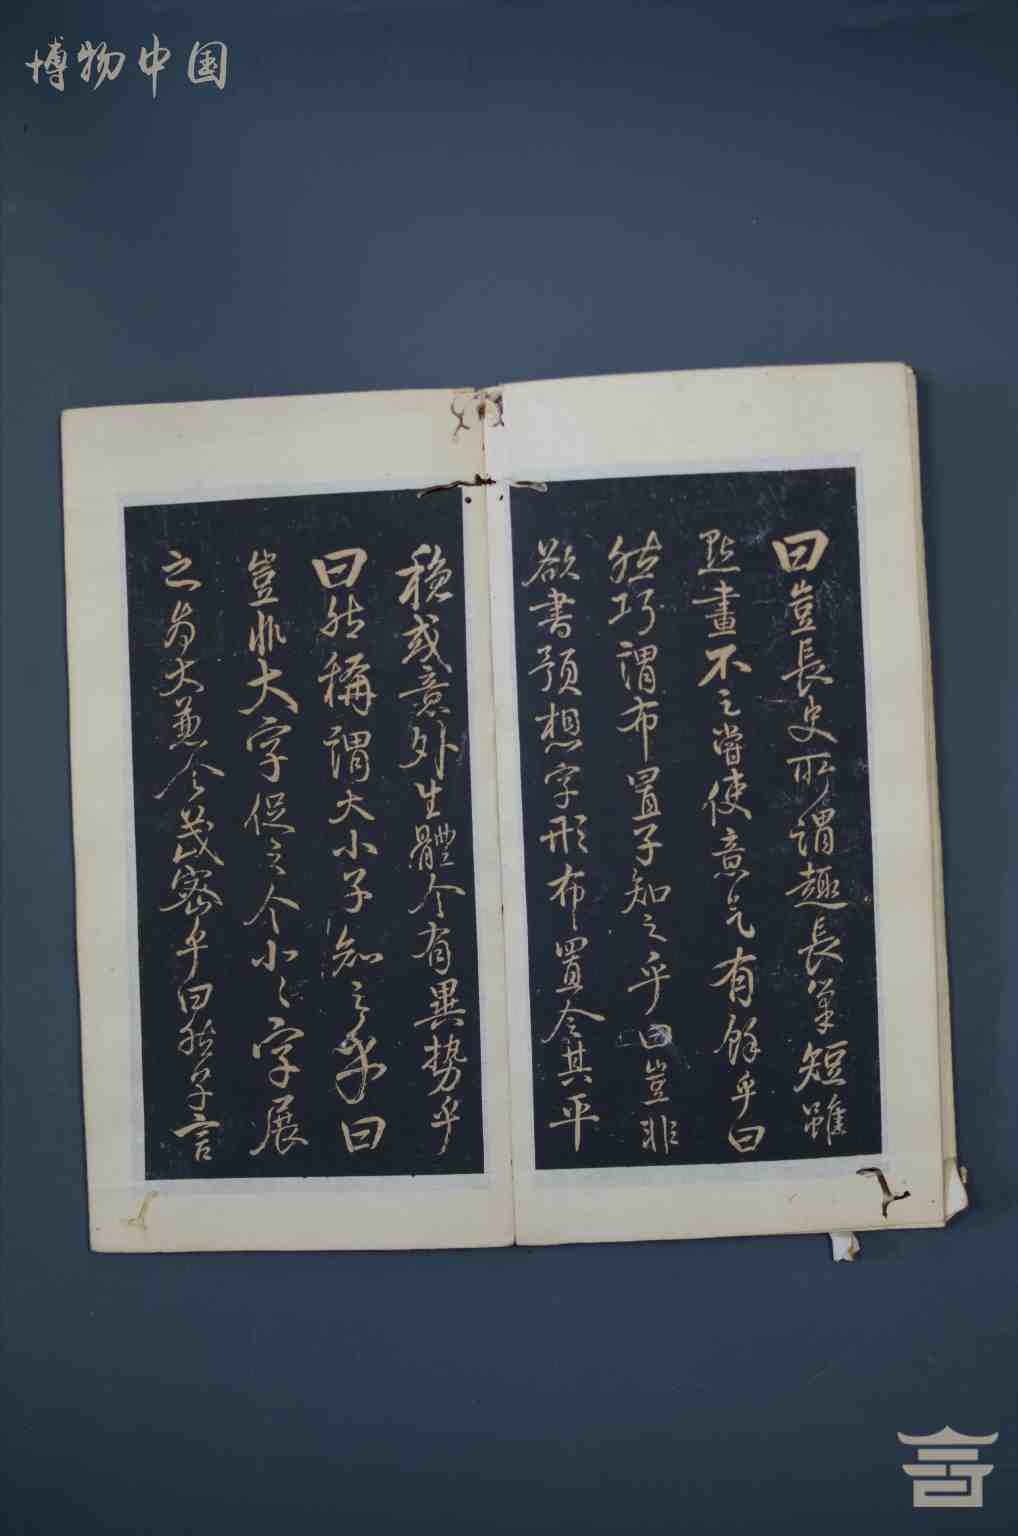 博物中国
曰豈長史所謂趣長筆短雖
點畫不足嘗使意氣有餘乎曰
然巧謂布置子知之乎曰豈非
欲書預想字形布置令其平
穩或意外生體令有異勢乎
曰然稱謂大小子知之乎曰
豈非大字促之令小小字展
之為大兼令茂密乎曰然子言